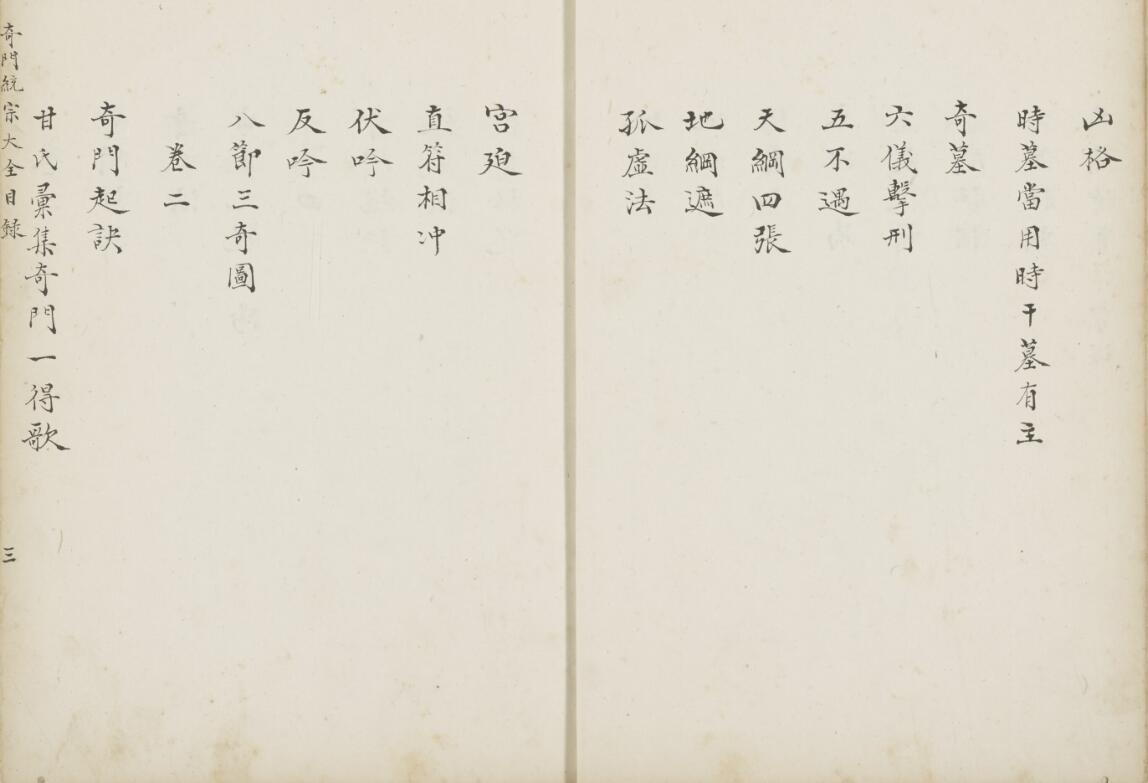 凶格
時墓當用時干墓有主
奇墓
六儀擊刑
五不遇
天綱四張
地綱遮
孤虛法
宮廹
直符相冲
伏吟
反吟
八節三奇圖
卷二
奇門起訣
甘氏彙集奇門一得歌
奇門統宗大全目録
三